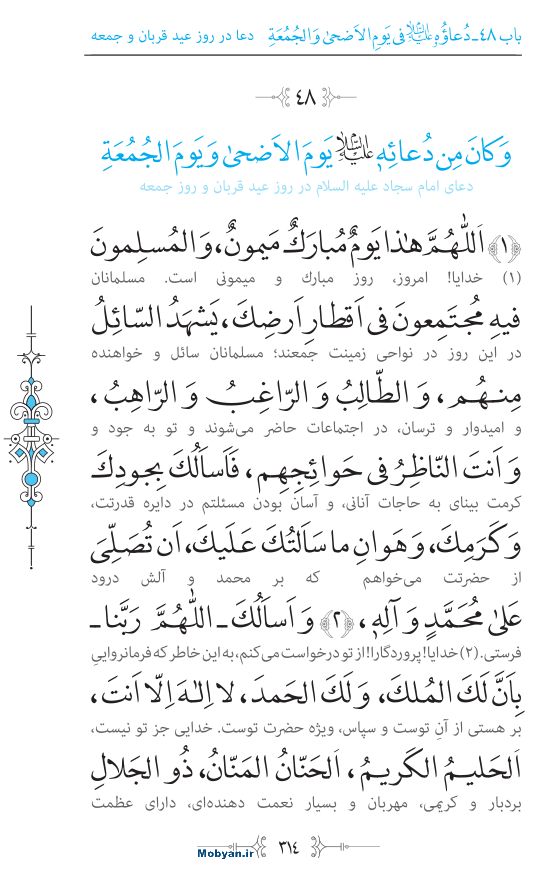 باب ۴۸ـ دُعاؤُهُ عليه السلام فی یَومِ الاَضحیٰ وَ الجُمُعَةِ دعا در روز عید قربان و جمعه
۴۸
وَ کانَ مِن دُعائِهٖ عليه السلام یَومَ الاَضحیٰ وَ یَومَ الجُمُعَةِ
دعای امام سجاد علیه السلام در روز عید قربان و روز جمعه
﴿۱﴾ اَللّٰهُمَّ هٰذا یَومٌ مُبارَكٌ مَیمونٌ، وَ المُسلِمونَ
(۱) خدایا! امروز، روز مبارك و میمونی است. مسلمانان
فیهِ مُجتَمِعونَ فی اَقطارِ اَرضِكَ، یَشهَدُ السّائِلُ
در این روز در نواحی زمینت جمعند؛ مسلمانان سائل و خواهنده
مِنهُم، وَ الطّالِبُ وَ الرّاغِبُ وَ الرّاهِبُ،
و امیدوار و ترسان، در اجتماعات حاضر می‌شوند و تو به جود و
وَ اَنتَ النّاظِرُ فی حَوائِجِهِم، فَاَسأَلُكَ بِجودِكَ
کرمت بینای به حاجات آنانی، و آسان بودن مسئلتم در دایره قدرتت،
وَ كَرَمِكَ، وَ هَوانِ ما سَاَلتُكَ عَلَیكَ، اَن تُصَلِّیَ
از حضرتت می‌خواهم که بر محمد و آلش درود
عَلیٰ مُحَمَّدٍ وَ آلِهٖ، ﴿۲﴾ وَ اَسأَلُكَ ـ اَللّٰهُمَّ رَبَّنا ـ
فرستی. (۲) خدایا! پروردگارا! از تو درخواست می‌کنم، به این خاطر که فرمانروایی
بِاَنَّ لَكَ المُلكَ، وَ لَكَ الحَمدَ، لا اِلـٰهَ اِلّا اَنتَ،
بر هستی از آنِ توست و سپاس، ویژه حضرت توست. خدایی جز تو نیست،
اَلحَلیمُ الكَریمُ، اَلحَنّانُ المَنّانُ، ذُو الجَلالِ
بردبار و کریمی، مهربان و بسیار نعمت دهنده‌ای، دارای عظمت
۳۱۴
Mobyan.ir